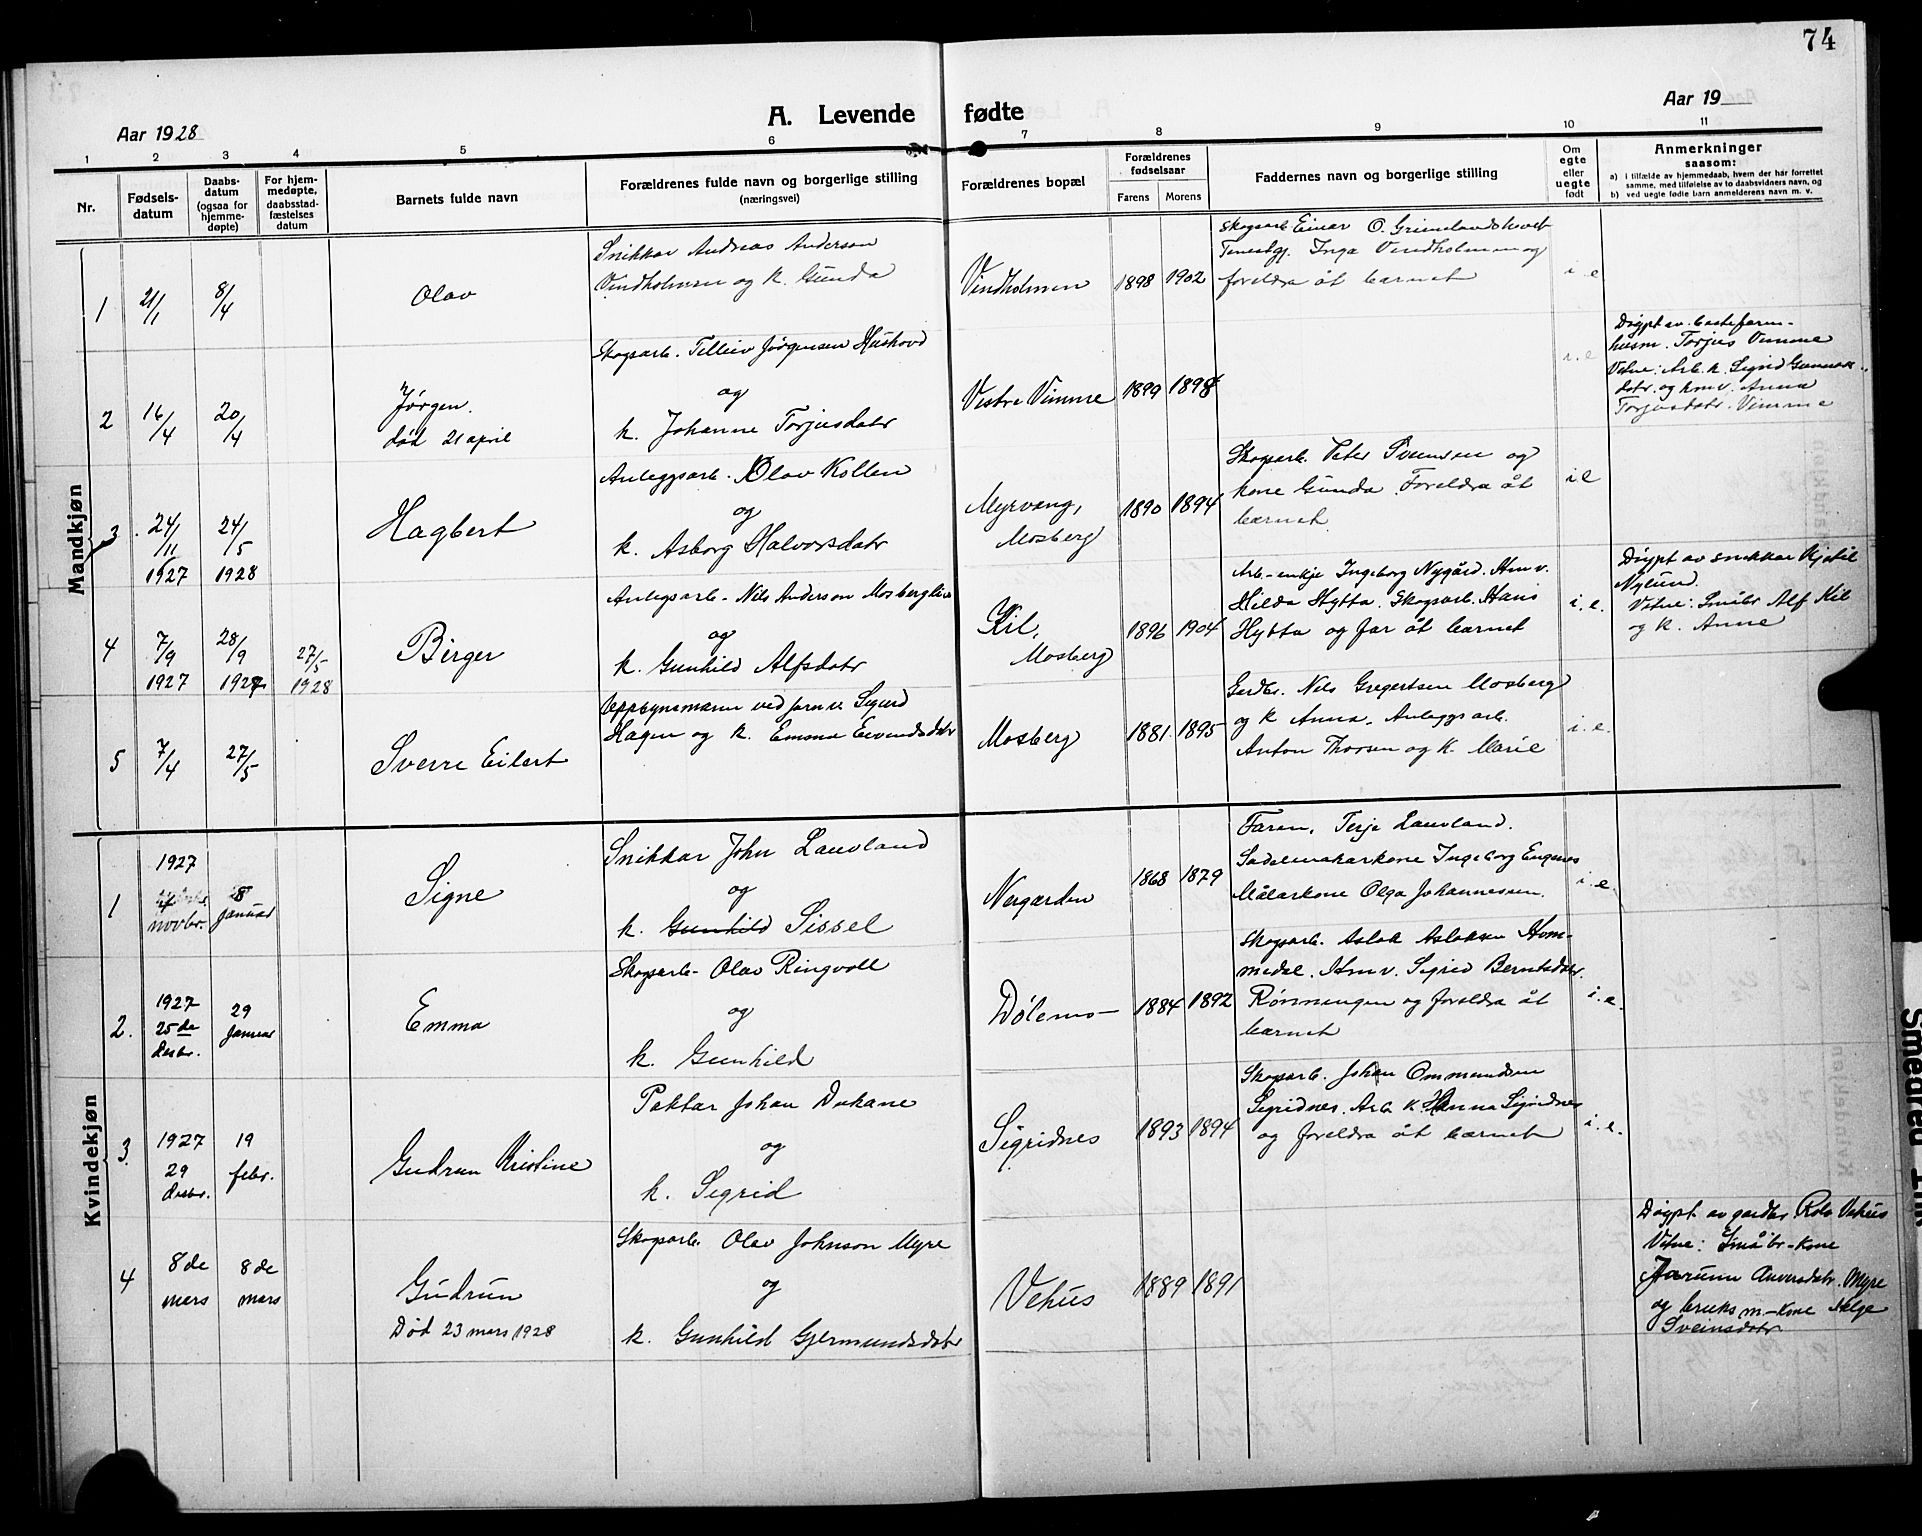 74
A. Levende fødte
Aar 1928
Aar 19
1 2 3 4 5 6 7 8 9 10 11
Nr.
Fødsels-
datum
Daabs-
datum
(ogsaa for
hjemme-
døpte)
For hjem-
medøpte,
daabsstad-
fæstelses
datum
Barnets fulde navn
Forældrenes fulde navn og borgerlige stilling
(næringsvei)
Forældrenes bopæl
Forældrenes
fødselsaar
Farens Morens
Faddernes navn og borgerlige stilling
Om
egte
eller
uegte
født
Anmerkninger
saasom:
a) i tilfælde av hjemmedaab, hvem der har forrettet
samme, med tilføielse av to daabsvidners navn, og
b) ved uegte fødte barn anmelderens navn m. v.
Mandkjøn
1 21/1 8/4
Olav
Snikkar Andreas Anderson
Vindholmen og k. Gunda
Vindholmen
1898 1902
Skogsarb Einar O. Grimelandshovet
Inga Vindholmen og
foreldra åt barnet
i. e
2 16/4 20/4
Jørgen.
død 21 april
Skogsarb. Telleiv Jørgensen Hushovd
og
k. Johanne Torjusdotr
Vestre Vimme
1899 1898
i. e
Døypt av bestefaren
husm. Torjus Vimme
Vitne: Arb. k. Sigrid Gunnars-
dotr. og hmv. Anna
Torjusdotr. Vimme
3 24/11 1927 24/5 1928
Hagbert
Anleggsarb. Olav Kollen
og
k. Asborg Halvorsdotr
Myrvang,
Mosberg
1890 1894
Skogsarb. Peter Svensen og
kone Gunda. Foreldra åt
barnet
i e
4 7/9 1927 28/9 1927 27/5 1928
Birger
Anlegsarb. Nils Anderson Mosberglien
og
k. Gunhild Alfsdotr
Kil,
Mosberg
1896 1904
Arb-enkje Ingeborg Nygård. Hmv.
Hilda Hytta. Skogsarb. Hans
Hytta og far åt barnet
i. e.
Døypt av snikkar Kjetil
Nylund.
Vitne: Småbr Alf Kil
og k. Anne
5 7/4 27/5
Sverre Eilert
Oppsynsmann ved jarnv. Sigurd
Hagen og k. Emma Eivendsdotr
Mosberg
1881 1895
Gardbr. Nils Gregertsen Mosberg
og k Anna. Anleggsarb.
Anton Thorsen og k. Marie
i. e.
Kvindekjøn
1 1927
novbr.
8
januar
Signe
Snikkar John Lauvland
og
k. Gunhild Sissel
Nergarden
1868 1879
Faren, Terje Lauvland.
Sadelmakarkone Ingeborg Engenes
Målarkone Olga Johannessen.
i. e.
2. 1927
25de
desbr.
29
januar
Emma
Skogsarb. Olav Ringvoll
og
k. Gunhild
Dølemo
1884 1892
Skogsarb. Aslak Aslaksen Hom-
medal. Hmv. Sigrid Berntsdotr.
Rønningen og foreldra åt
barnet
i. e.
3. 1927
29
desbr.
19
febr.
Gudrun Kristine
Paktar Johan Dukane
og
k. Sigrid
Sigridnes
1893 1894
Skogsarb. Johan Ommundsen
Sigridnes. Arb. k. Hanna Sigridnes
og foreldra åt barnet
i. e.
4 8de
mars
8 de
mars
Gudrun
Død 23 mars 1928
Skogsarb. Olav Johnson Myre
og
k. Gunhild Gjermundsdotr
Vehus
1889 1891
Døypt av gardbr Rolv Vehus
Vitne: Småbr-kone
Jorunn Anversdotr. Myre
og bruksm-kone Helge
Sveinsdotr